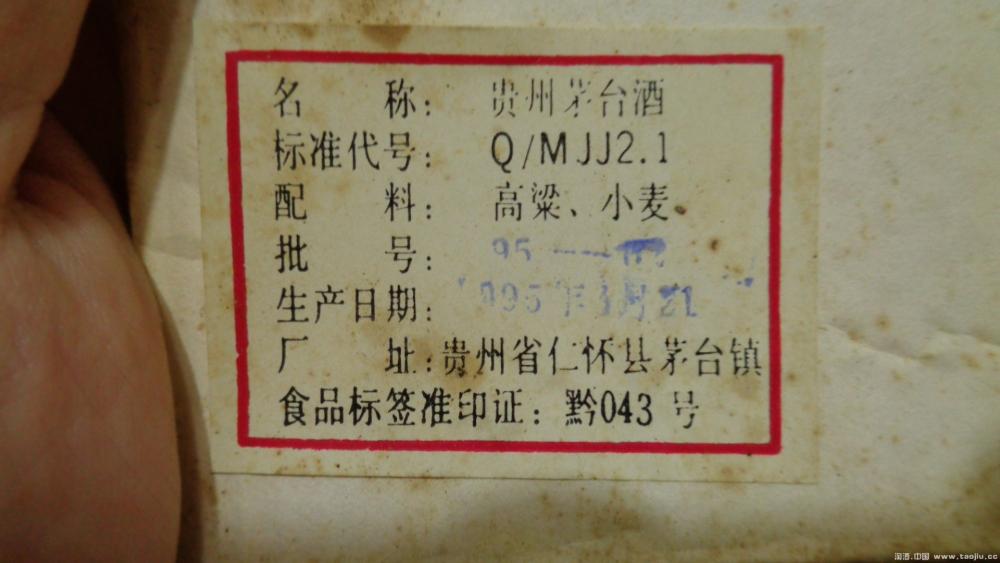 名 称: 贵州茅台酒
标准代号: Q/MJJ2.1
配 料: 高粱、小麦
批 号: 95
生产日期: 1995年 月21
厂 址:贵州省仁怀县茅台镇
食品标签准印证: 黔043号
淘酒.中国 www.taojiu.cc